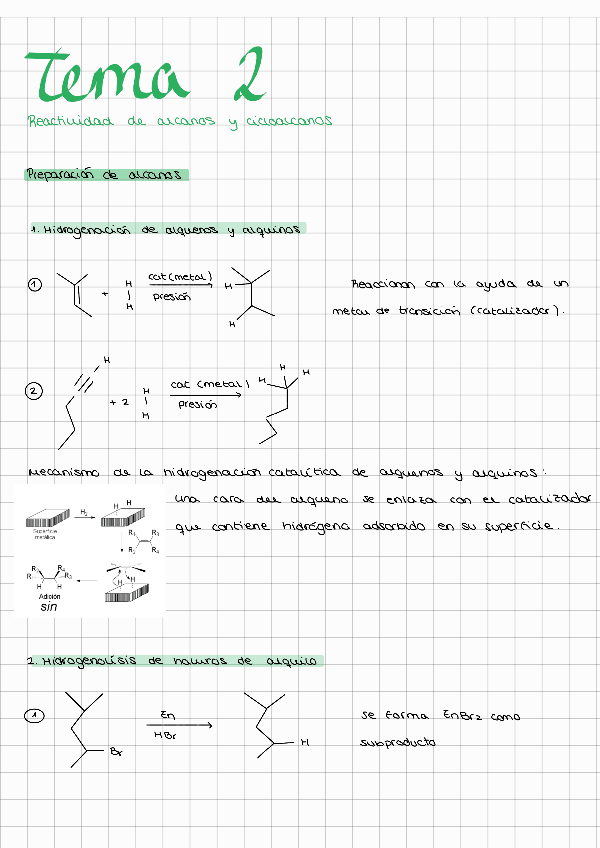 Tema 2
Reactividad de alcanos y cicloalcanos
Preparación de alcanos
1. Hidrogenación de alquenos y alquinos
1 + H H cat (metal) presión H H
Reaccionan con la ayuda de un
metal de transición (catalizador).
2 H + 2 H H cat (metal) presión H H H
Mecanismo de la hidrogenación catalítica de alquenos y alquinos:
una cara del alqueno se enlaza con el catalizador
que contiene hidrógeno adsorbido en su superficie.
Superficie metálica H2 H H
R1 R3 R2 R4
H H
Adición
sin
2. Hidrogenólisis de haluros de alquilo
1 Br Zn HBr H
Se forma ZnBr2 como
subproducto